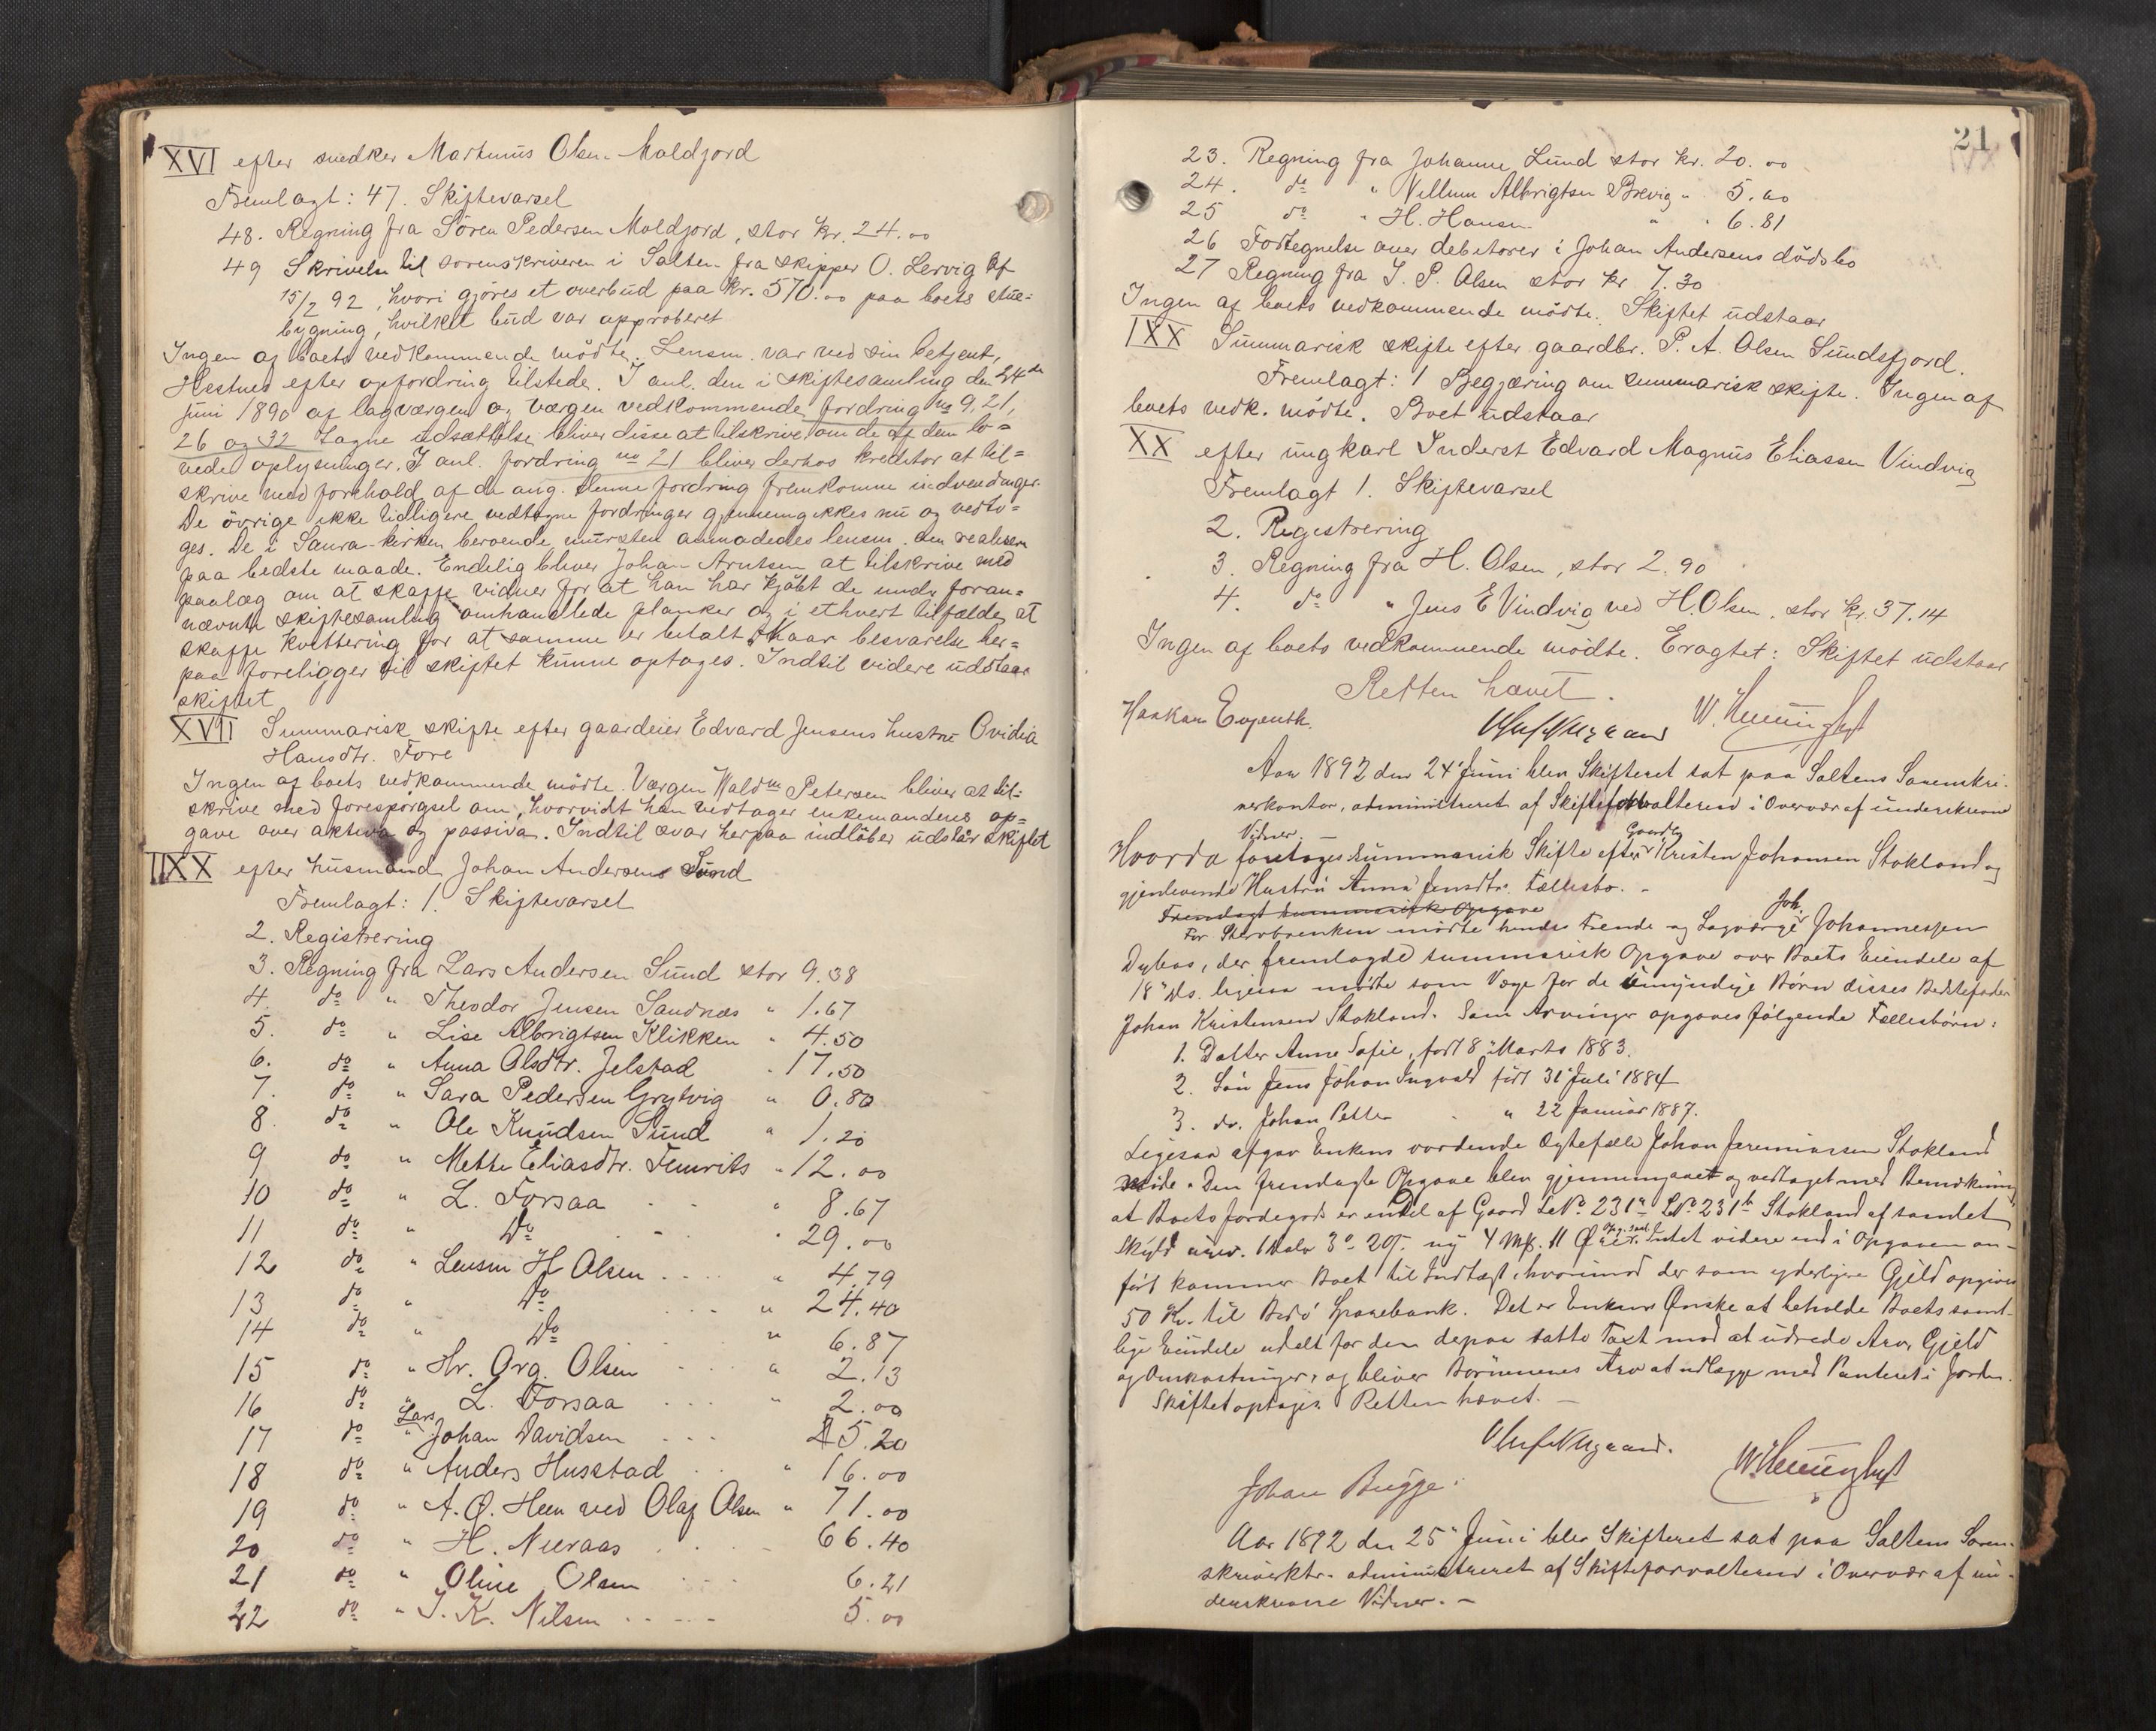 XVI efter snedker Martinus Olsen Moldjord
Fremlagt: 47. Skiftevarsel
48. Regning fra Sören Pedersen Moldjord, stor kr. 24.00
49 Skrivelse til sorenskriveren i Salten fra skipper O. Lervig af
15/2 92, hvori gjöres et overbud paa kr. 570.00 paa boets stue=
bygning, hvilket bud var approberet
Ingen af boets vedkommende mödte. Lensm. var ved sin betjent,
Hestnes efter opfordring tilstede. I anl. den i skiftesamling den 24de
juni 1890 af lagværgen og værgen vedkommende fordring no 9, 21,
26 og 32 tagne udsættelse bliver disse at tilskrive om de af dem lo=
vede oplysninger. I anl. fordring no 21 bliver derhos kreditor at til=
skrive med forehold af de ang. denne fordring fremkomne indvendinger.
De övrige ikke tidligere vedtagne fordringer gjennemgikkes nu og vedto=
ges. De i Saura-kirken beroende mursten anmodedes lensm. den realisere
paa bedste maade. Endelig bliver Johan Arntsen at tilskrive med
paalæg om at skaffe vidner for at han har kjöbt de under foran=
nævnte skiftesamling omhandlede planker og i ethvert tilfælde at
skaffe kvittering for at samme er betalt. Naar besvarelse her=
paa foreligger vil skiftet kunne optages. Indtil videre udstaar
skiftet
XVII Summarisk skifte efter gaardeier Edvard Jensens hustru Ovidia
Hansdtr. Fore
Ingen af boets vedkommende mödte. Værgen Waldm Petersen bliver at til=
skrive med forespörgsel om, hvorvidt han vedtager enkemandens op=
gave over aktiva og passiva. Indtil svar herpaa indlöber udstår skiftet
IIXX efter husmand Johan Andersens Sund
Fremlagt: 1. Skiftevarsel
2. Registrering
3. Regning fra Lars Andersen Sund stor 9.38
4. do " Theodor Jensen Sandnæs " 1.67
5. do " Lise Albrigtsen Klikken " 4.50
6. do " Anna Olsdtr. Jelstad " 17.50
7. do " Sara Pedersen Grytvig " 0.80
8. do " Ole Knudsen Sund " 1.20
9 do " Mette Eliasdtr. " 12.00
10 do " L. Forsaa " 8.67
11 do " Do " 29.00
12 do " Lensm H Olsen " 4.79
13 do " Do " 24.40
14 do " Do " 6.87
15 do " Hr. Org. Olsen " 2.13
16 do " L. Forsaa " 2.00
17 do " Lars Johan Davidsen 5.20
18 do " Anders Husstad " 16.00
19 do " A. Ø. Heen ved Olaf Olsen " 71.00
20 do " H. Neeraas 66.40
21 do " Oline Olsen 6.21
22 do " J. K. Nilsen 5.00
21
23. Regning fra Johanne Lund stor kr. 20.00
24. do " Nellum Albrigtsen Brevig " 5.00
25 do " H. Hansen " " 6.81
26 Fortegnelse over debetorer i Johan Andersens dödsbo
27 Regning fra J. P. Olsen stor kr 7.30
Ingen af boets vedkommende mödte. Skiftet udstaar
IXX Summarisk skifte efter gaardbr. P. A. Olsen Sundsfjord.
Fremlagt: 1 Begjæring om summarisk skifte. Ingen af
boets vedk. mödte. Boet udstaar
XX efter ungkarl Inderst Edvard Magnus Eliassen Vindvig
Fremlagt 1. Skiftevarsel
2. Registrering
3. Regning fra H. Olsen, stor 2.90
4. do " Jens E Vindvig ved H. Olsen, stor kr. 37.14
Ingen af boets vedkommende mödte. Eragtet: Skiftet udstaar
Retten hævet.
Haakon Evjenth. Oluf Nygaard
Aar 1892 den 24' Juni blev Skifteret sat paa Saltens Sorenskri-
verkontor, administreret af Skifteforvalteren i Overvær af underskrevne
Vidner. —
Hvorda foretoges Summarisk Skifte efter Gaardbr Kristen Johansen Stokland og
gjenlevende Hustru Anna Jensdtr. Fællesbo. —
Fremlagt summarisk Opgave
For Stervboenken mödte hendes Frende og Lagværge Joh. Johannessen
Dybos, der fremlagde summarisk Opgave over Boets Eiendele af
18' ds. ligesaa mödte som Værge for de umyndige Börn disses Bedstefader
Johan Kristensen Stokland. Som Arvinger opgaves fölgende Fællesbörn:
1. Datter Anne Sofie, födt 8' Marts 1883.
2. Sön Jens Johan Ingvald födt 31' Juli 1884
3. do. Johan Petter " 22 Januar 1887.
Ligesaa afgav Enkens vordende Ægtefælle Johan Jeremiassen Stokland
Möde. Den fremlagte Opgave blev gjennemgaaet og vedtaget med Bemærkning
at Boets Jordegods er endel af Gaard LNo. 231a LNo. 231b Stokland af samlet
Skyld 1 Dalr 3 o- 20 s. ny 4 Mk. 11 Øre. Intet videre end i Opgaven an-
fört kommer Boet til Indtægt, hvorimod der som yderligere Gjeld opgives
50 Kr. til Bodö Sparebank. Det er Enkens Önske at beholde Boets samt-
lige Eiendele udelt for den derpaa satte Taxt mod at udrede Arv, Gjeld
og Omkostninger, og bliver Börnenes Arv at udlægge med Panteret i Jorden.
Skiftet optages. Retten hævet. —
Oluf Nygaard.
Johan Bugge.
Aar 1892 den 25' Juni blev Skifteret sat paa Saltens Soren-
skriverktr. administreret af Skifteforvalteren i Overvær af un-
derskrevne Vidner. —